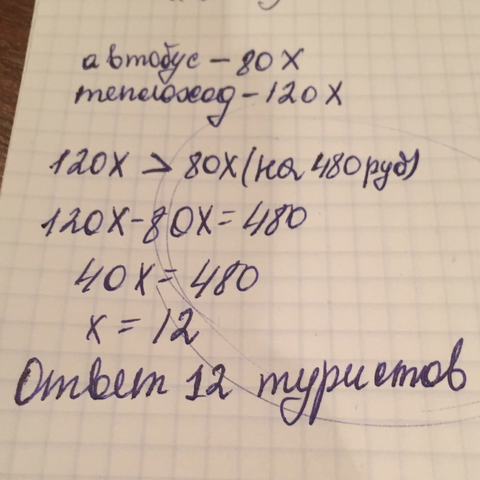 автобус - 80 х
теплоход - 120 х
120х > 80х (на 480 руб)
120х - 80х = 480
40х = 480
х = 12
Ответ 12 туристов